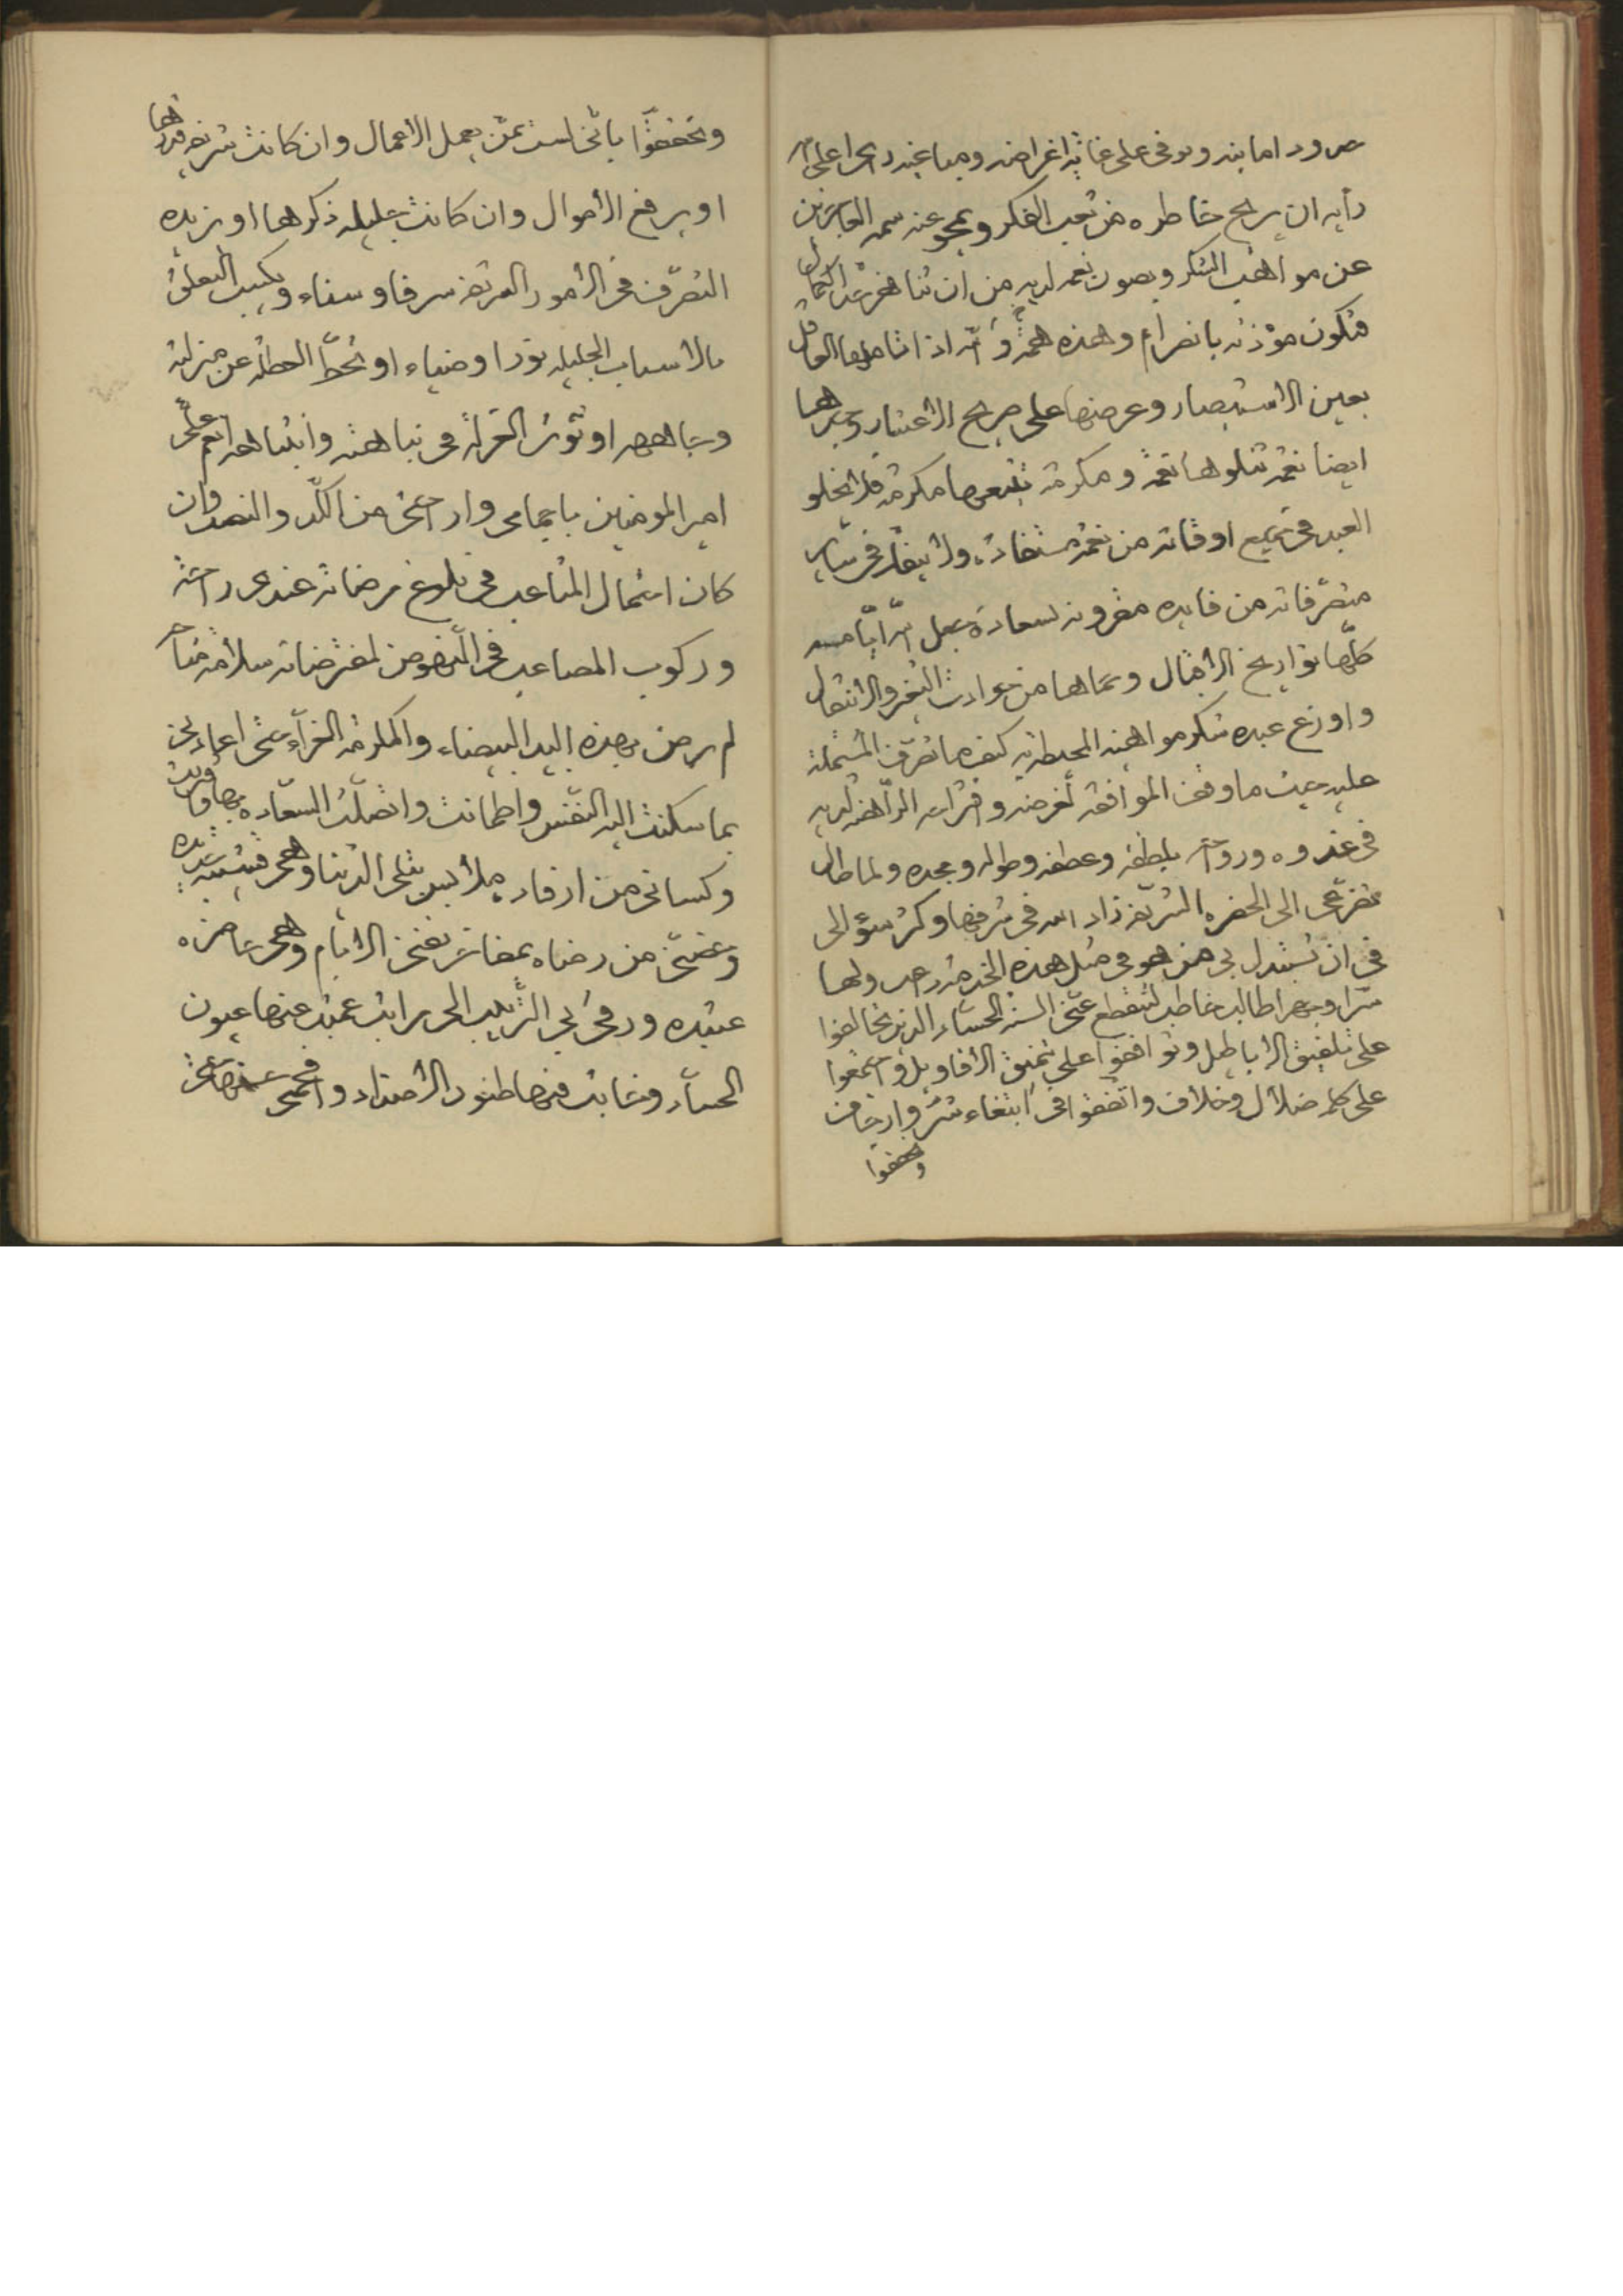 صرود امانيه ويوفي على غاية اغراضه ومباغيه راى اعلى الله
رأيه ان يريح خاطره من تعب الفكر ويمحو عنه سمه العاجزين
عن مواهب الشكر ويصون نعمه لديه من ان تناهز حد الكمال
فتكون مؤذنه بانصرام وهذه همة اذا تاملها العاقل
بعين الاستبصار وعرضها على صريح الاعتبار وجدها
ايضا نعمة تتلوها نعمة ومكرمة تتبعها مكرمة فلا يخلو
العبد في جميع اوقاته من نعمة مستفادة ولا ينفك في ساير
متصرفاته من فايده مقرونه بسعادة جعل الله ايامه
كلها تواريخ الاقبال وحماها من حوادث التغير والانتقال
واوزع عبده شكر مواهبه المحيطة به كيف ما تصرف المشتملة
عليه حيث ما وقف الموافقة لغرضه الراهنه لديه
في غدوه ورواحه بلطفه وعطفه وطوله ومجده ولما طال
تضرعي الى الحضره الشريفه زاد الله في شرفها وكثر سؤالى
في ان تستبدل بي من هو في مثل هذه الخدمة ولها
سرا وجهرا طالب خاطب لتنقطع عنى السنة الحساد الذين تحالفوا
على تلفيق الاباطيل وتوافقوا على تنميق الاقاويل واجتمعوا
على كلمه ضلال وخلاف واتفقوا في ابتغاء شر وارجاف
وتحققوا
وتحققوا بانى لست ممن يعمل الاعمال وان كانت شريفه قدرها
او يرفع الاموال وان كانت جليله ذكرها او يزيده
التصرف في الامور الشريفه شرفا وسناء ويكسبه التعلق
بالاسباب الجليله نورا وضياء او تحط العطلة عن منزلته
وجاهه او تؤثر العزلة في نباهته وانتباهه انعم على
امير المومنين باجمامى واراحتى من الكد والنصب وان
كان احتمال المتاعب في بلوغ مرضاته عندى راحة
وركوب المصاعب في النهوض لمفترضاته سلامة متاحة
لم يرض بهذه اليد البيضاء والمكرمة الغراء حتى اعادنى
بما سكنت اليه النفس واطمانت واتصلت السعاده بها وقويت
وكسانى من ارفاد ملابس تبلى الدنيا وهى قشيبه جديده
وخصنى من رضاه بمفاخر تفنى الايام وهى حاضره
عتيده ورقى بي الرتب الى مراتب عميت عنها عيون
الحساد وخابت فيها ظنون الاضداد